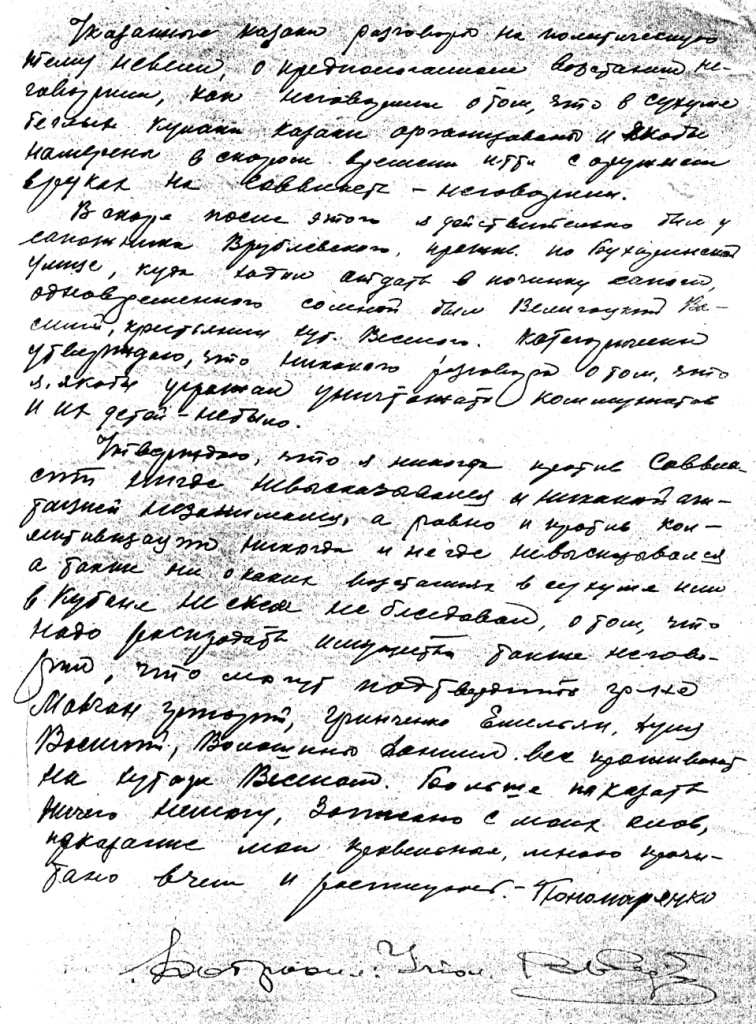 Указанные казаки разговора на политическую
тему невели, о предполагаемом возстании не-
говорили, как неговорили о том, что в сухуме
беглые казаки организованы и якобы
намерены в скором времени итти с оружием
вруках на соввласть - неговорили.
Вскоре после этого я действительно был у
сапожника Врублевского, прожив. по
улице, куда ходил отдать в починку сапоги,
одновременного сомной был Ва-
силий, крестьянин хут. Веселого. Категорически
утверждаю, что никакого разговора о том, что
я, якобы угрожал уничтожать коммунистов
и их детей - небыло.
Утверждаю, что я никогда против Соввла-
сти нигде невысказывался и никакой аги-
тацией незанимался, а равно и против кол-
лективизации никогда и негде невысказывался
а также ни о каких возстаниях в сухуме или
в Кубане ни скем не беседовал, о том, что
надо распродать имущество также негово-
рил, что могут подтвердить гр-не
Мовчан Григорий, Гринченко Емельян,
Василий, Волошин Даниил. все проживают
на хуторе Веселом. Больше показать
ничего немогу, Записано с моих слов,
показание мои правельное, мною прочи-
тано вчем и росписуюсь. - Пономаренко